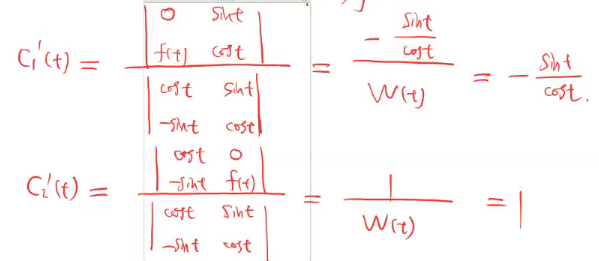 C₁'(t) = | 0 sint ; f(t) cost | / | cost sint ; -sint cost | = - (sint / cost) / W(t) = - sint / cost.
C₂'(t) = | cost 0 ; -sint f(t) | / | cost sint ; -sint cost | = 1 / W(t) = 1